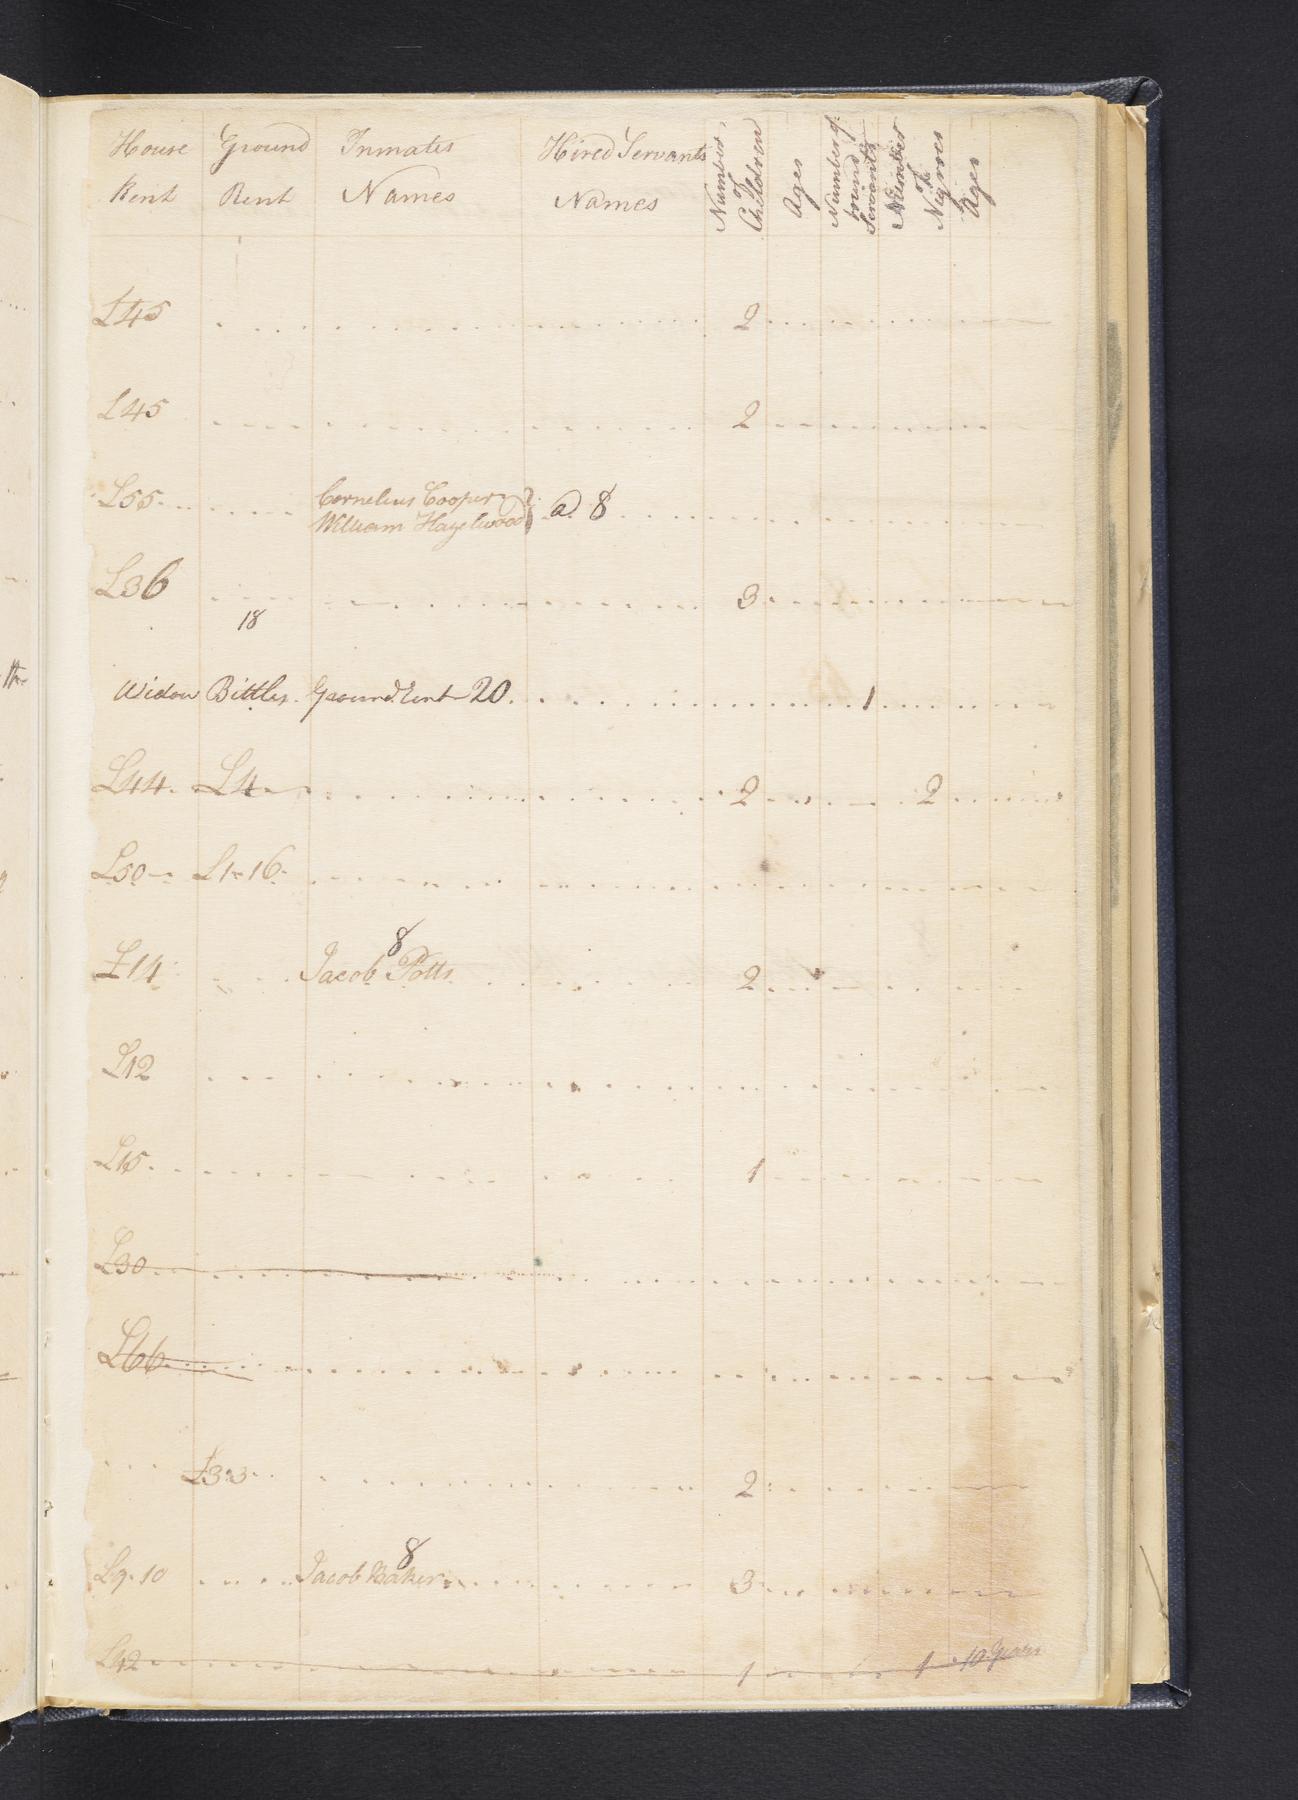 House Ground Inmates Hired Servants Number of Children Ages Number of bound Servants Number of Negroes Ages
Rent Rent Names Names
£45 2
£45 2
£55 Cornelius Cooper
William Hazelwood } @ 8
£36 3
18
Widow Bittles. Ground Rent 20. 1
£44. £4 2 2
£50 £1-16
8
£14 Jacob Potts 2
£12
£15. 1
£30
£66
£3:3 2
8
£9.10 Jacob Baker 3
£42 1 1 10 Years